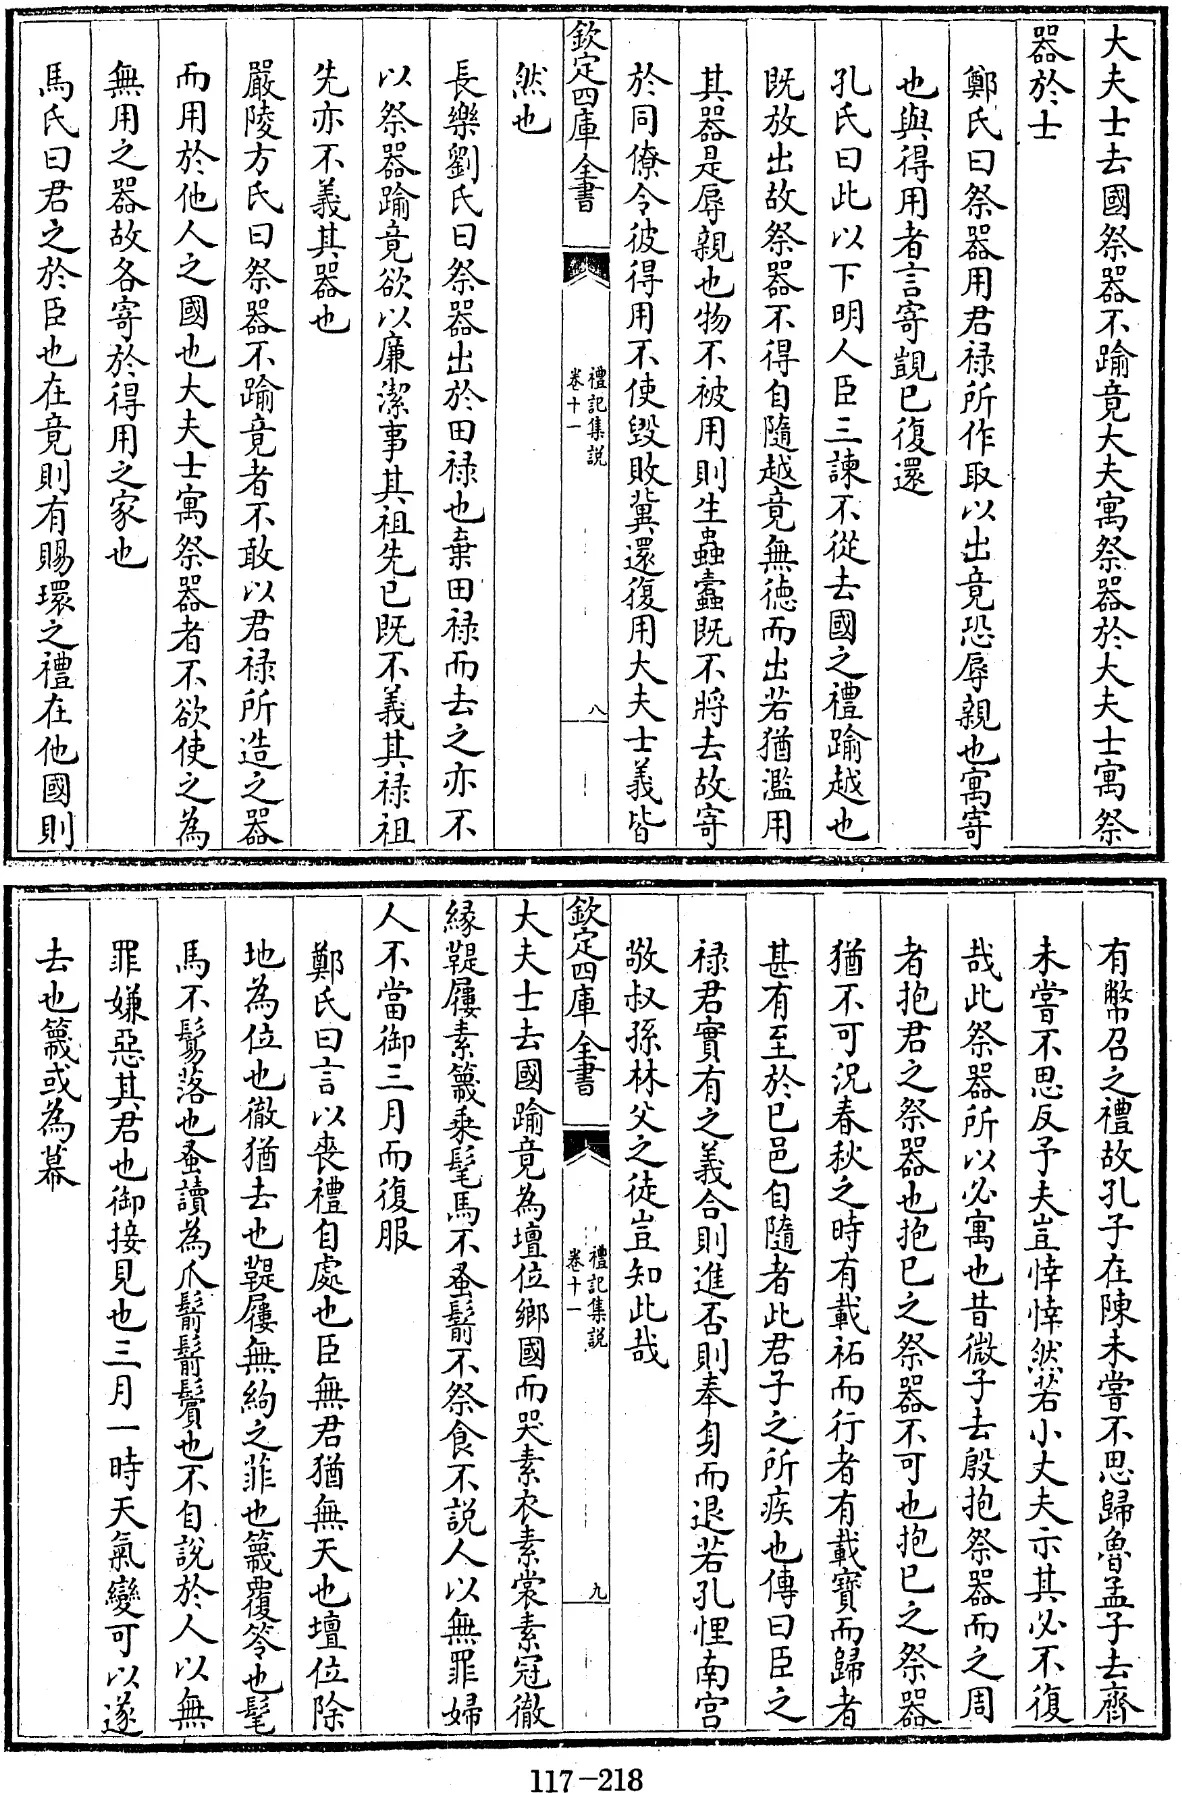 大夫士去國祭器不踰竟大夫寓祭器於大夫士寓祭
器於士
鄭氏曰祭器用君祿所作取以出竟恐辱親也寓寄
也與得用者言寄覬已復還
孔氏曰此以下明人臣三諫不從去國之禮踰越也
既放出故祭器不得自隨越竟無徳而出若猶濫用
其器是辱親也物不被用則生蟲蠧既不將去故寄
於同僚令彼得用不使毀敗冀還復用大夫士義皆
然也
欽定四庫全書
禮記集說
卷十一
八
長樂劉氏曰祭器出於田禄也棄田禄而去之亦不
以祭器踰竟欲以廉潔事其祖先已既不義其禄祖
先亦不義其器也
嚴陵方氏曰祭器不踰竟者不敢以君禄所造之器
而用於他人之國也大夫士寓祭器者不欲使之為
無用之器故各寄於得用之家也
馬氏曰君之於臣也在竟則有賜環之禮在他國則
有幣召之禮故孔子在陳未嘗不思歸魯孟子去齊
未嘗不思反予夫豈悻悻然若小丈夫示其必不復
哉此祭器所以必寓也昔微子去殷抱祭器而之周
者抱君之祭器也抱已之祭器不可也抱已之祭器
猶不可況春秋之時有載祏而行者有載寳而歸者
甚有至於已邑自隨者此君子之所疾也傳曰臣之
禄君實有之義合則進否則奉身而退若孔悝南宫
敬叔孫林父之徒豈知此哉
欽定四庫全書
禮記集說
卷十一
九
大夫士去國踰竟為壇位鄉國而哭素衣素裳素冠徹
緣鞮屨素簚乗髦馬不蚤鬋不祭食不説人以無罪婦
人不當御三月而復服
鄭氏曰言以喪禮自處也臣無君猶無天也壇位除
地為位也徹猶去也鞮屨無絇之菲也簚覆笭也髦
馬不鬄落也蚤讀為爪鬋鬋鬢也不自説於人以無
罪嫌惡其君也御接見也三月一時天氣變可以遂
去也簚或為幕
117-218